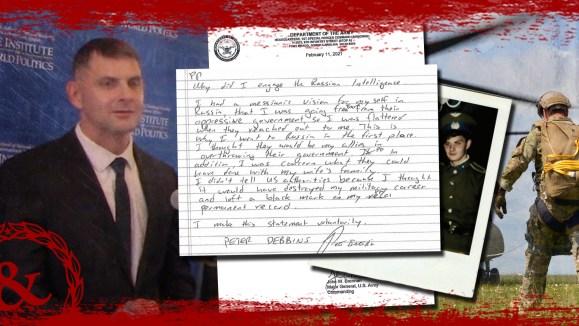 INSTITUTE
WORLD
POLITICS
DEPARTMENT OF THE ARMY
February 11, 2021
Why did I engage the Russian Intelligence
I had a messianic vision for myself in
Russia, that I was going free them their
oppressive government, so I was flattered
when they reached out to me. This is
why I went to Russia in the first place.
I thought they would be my allies in
overthrowing their government. In
addition, I was concern what they could
have done with my wife's family.
I didn't tell US authorities because I thought
it would have destroyed my military career
and left a black mark on my
permanent record.
I make this statement voluntarily.
PETER DEBBINS
Major General, U.S. Army
Commanding
&